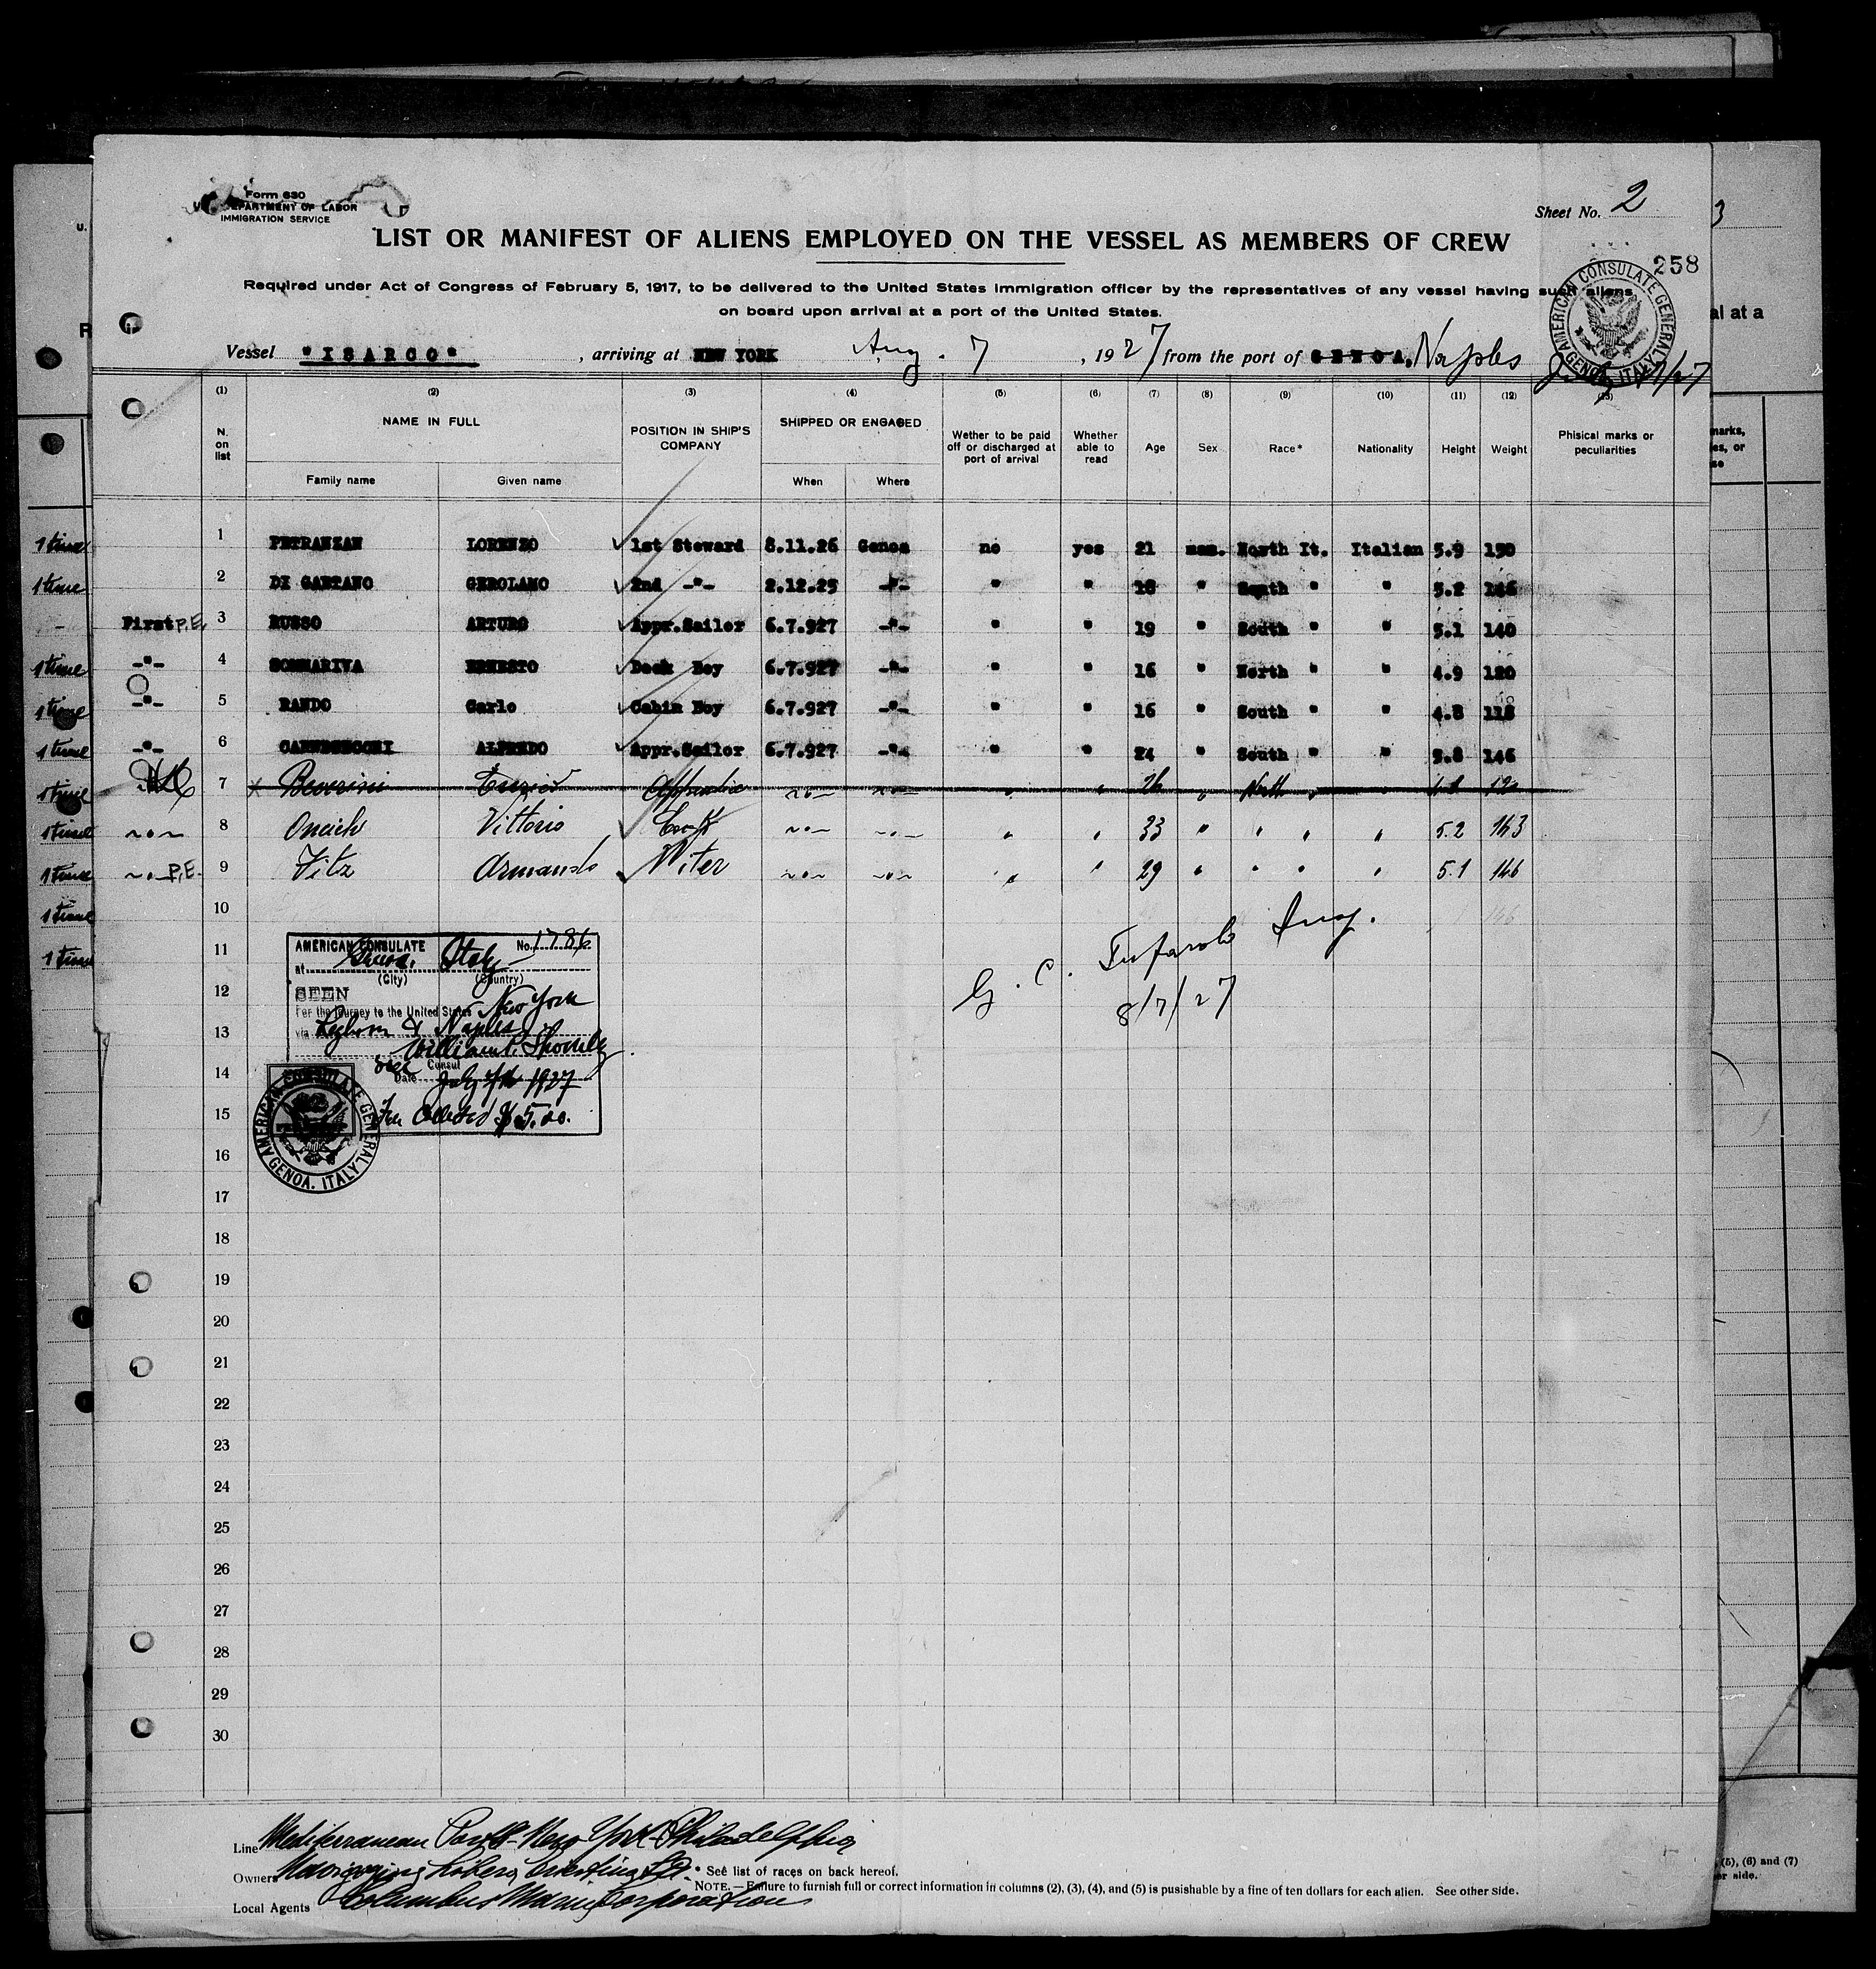 Form 630
DEPARTMENT OF LABOR
IMMIGRATION SERVICE
Sheet No. 2
LIST OR MANIFEST OF ALIENS EMPLOYED ON THE VESSEL AS MEMBERS OF CREW
258
Required under Act of Congress of February 5, 1917, to be delivered to the United States Immigration officer by the representatives of any vessel having such aliens
on board upon arrival at a port of the United States.
AMERICAN CONSULATE GENERAL GENOA, ITALY
Vessel "ISARCO", arriving at NEW YORK Aug. 7, 1927 from the port of GENOA, Naples
(1) (2) (3) (4) (5) (6) (7) (8) (9) (10) (11) (12) (13)
N. on list NAME IN FULL POSITION IN SHIP'S COMPANY SHIPPED OR ENGAGED Wether to be paid off or discharged at port of arrival Whether able to read Age Sex Race* Nationality Height Weight Phisical marks or peculiarities
Family name Given name When Where
1 time 1 PETRANZAN LORENZO 1st Steward 8.11.26 Genoa no yes 21 man. North It. Italian 5.9 150
1 time 2 DI GAETANO GEROLAMO 2nd -"- 2.12.25 -"- " " 18 " South " " 5.2 146
- First P.E. 3 RUSSO ARTURO Appr.Sailor 6.7.927 -"- " " 19 " South " " 5.1 140
1 time -"- 4 SOMMARIVA ERNESTO Deck Boy 6.7.927 -"- " " 16 " North " " 4.9 120
1 time -"- 5 RANDO Carlo Cabin Boy 6.7.927 -"- " " 16 " South " " 4.8 118
1 time -"- 6 ALFREDO Appr.Sailor 6.7.927 -"- " " 24 " South " " 5.8 146
1 time 7 Beverini " " " North " "
1 time -"- 8 Oneich Vittorio Cook -"- -"- " " 33 " " " " 5.2 143
1 time -"- P.E. 9 Fitz Armando -"- -"- " " 29 " " " " 5.1 146
1 time 10
1 time 11
12
13
14
15
16
17
18
19
20
21
22
23
24
25
26
27
28
29
30
G. C. Insp.
8/7/27
AMERICAN CONSULATE No. 1786
at Genoa, Italy
(City) (Country)
SEEN
For the journey to the United States New York
via Leghorn & Naples
William P.
Consul
Date July 1927
Fee Collected $5.00.
AMERICAN CONSULATE GENERAL GENOA, ITALY
Line Mediterranean Ports-New York-Philadelphia
Owners
* See list of races on back hereof.
NOTE.—Failure to furnish full or correct information in columns (2), (3), (4), and (5) is pusishable by a fine of ten dollars for each alien. See other side.
Local Agents Columbus Marine Corporation
3
al at a
marks,
es, or
(5), (6) and (7)
er side.